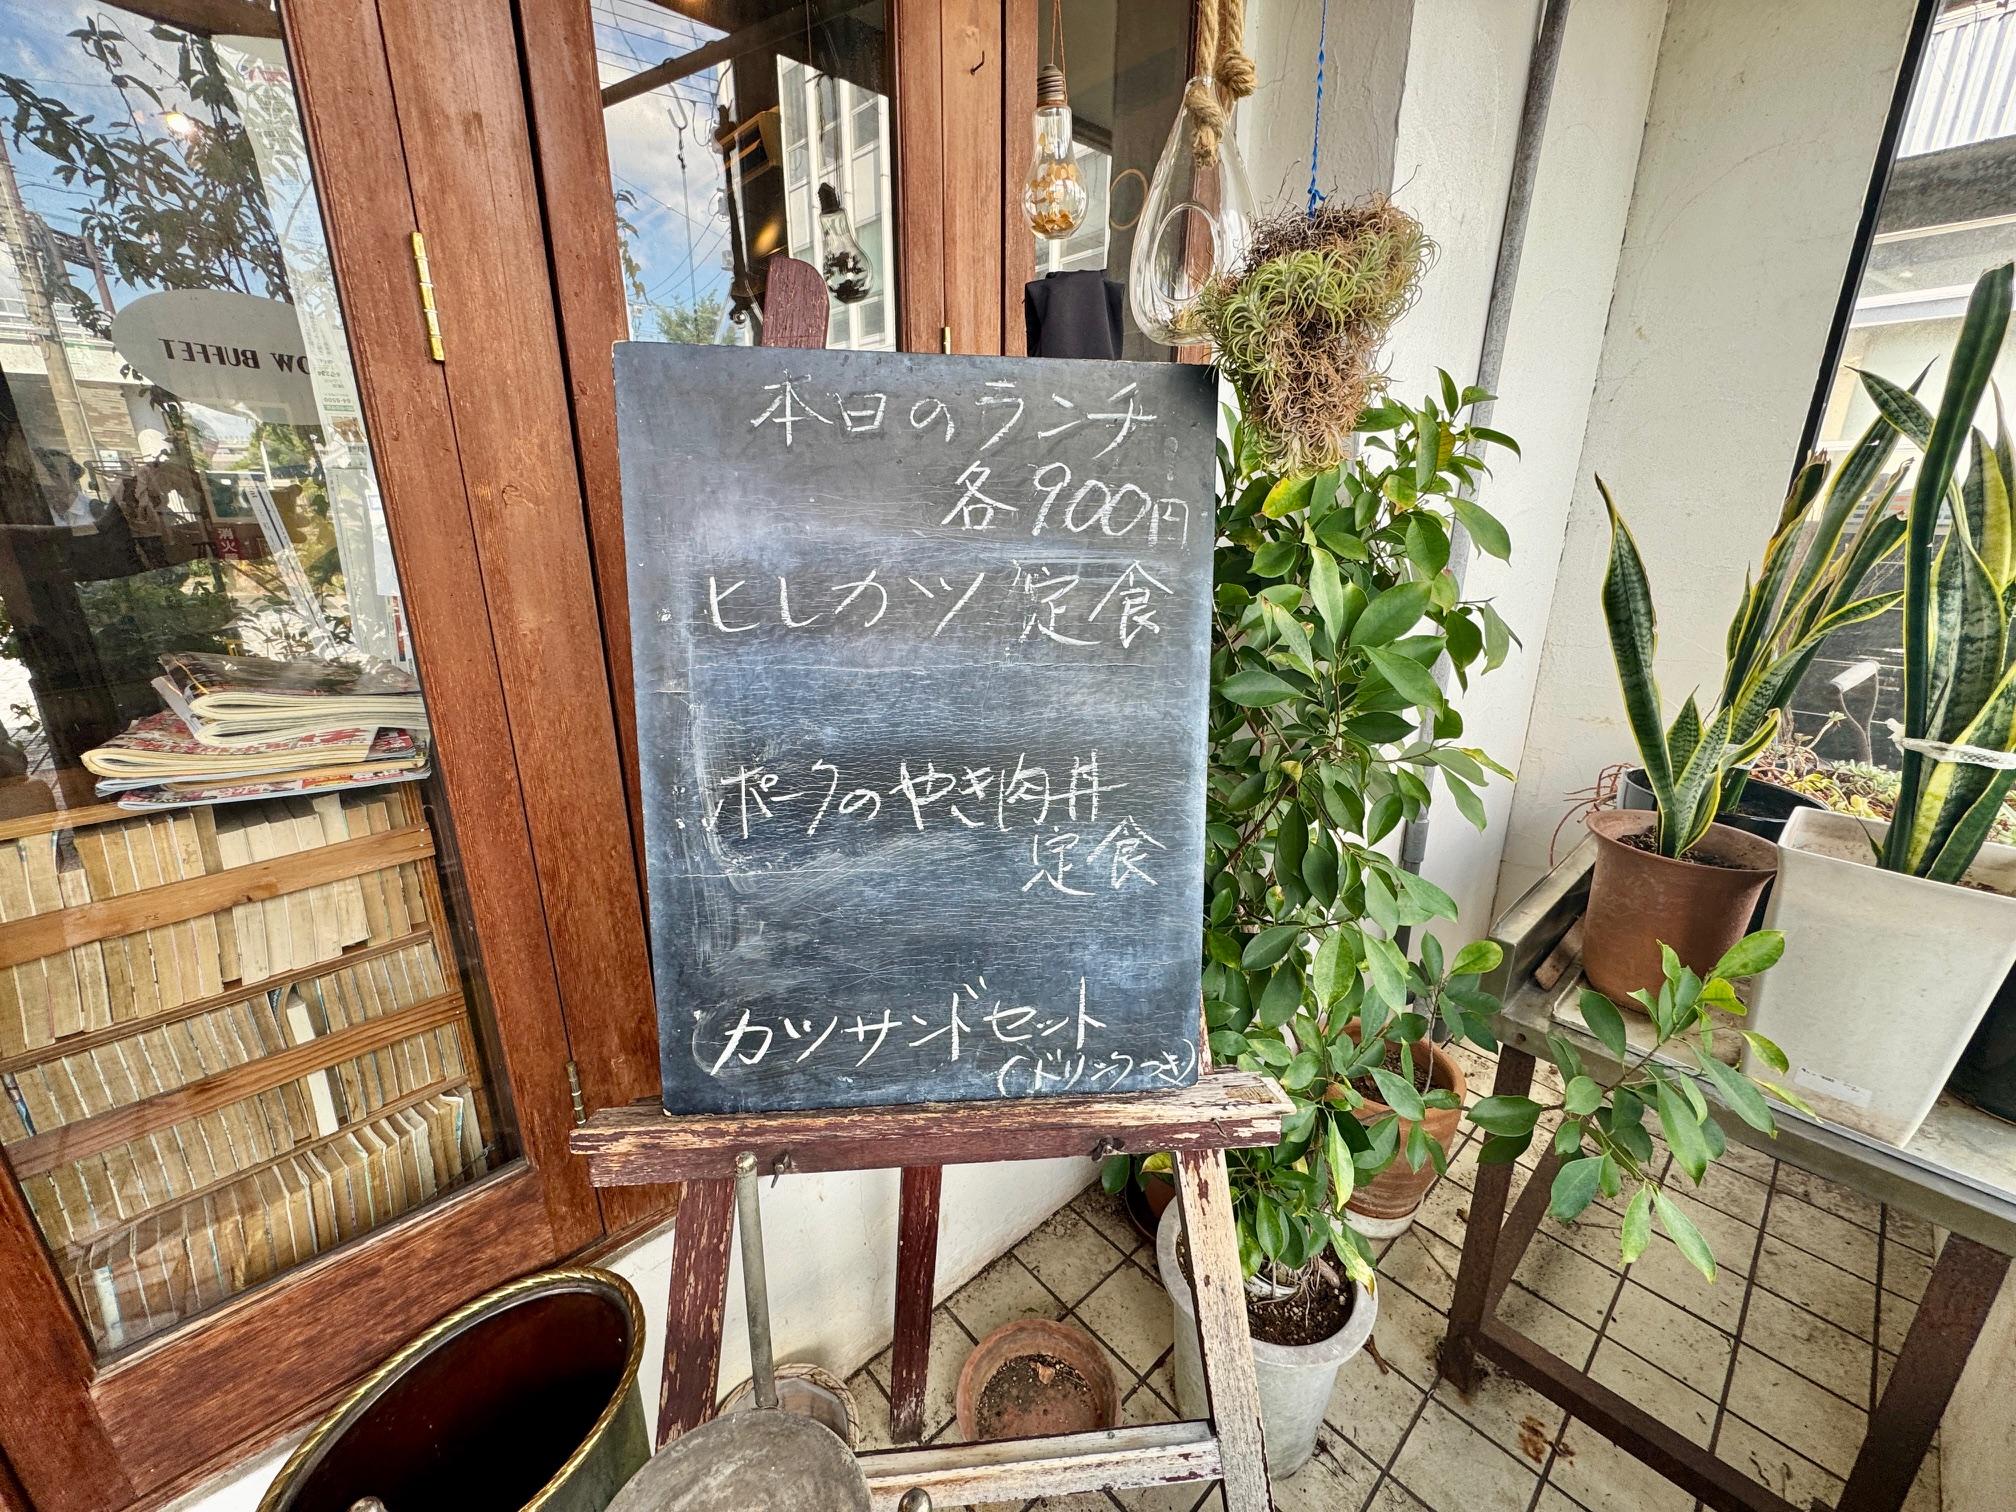 本日のランチ
各900円
ヒレカツ定食
ポークのやき肉丼
定食
カツサンドセット
(ドリンクつき)
OW BUFFET